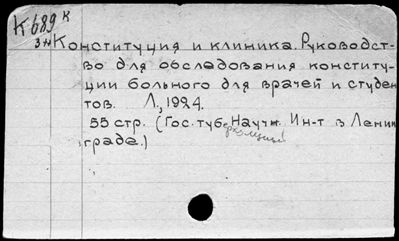 К 689 к
3н
Конституция и клиника. Руководст-
во для обследования конститу-
ции больного для врачей и студен
тов. Л., 1924.
55 стр. (Гос. туб. Научн. Ин-т в Ленин
граде.)